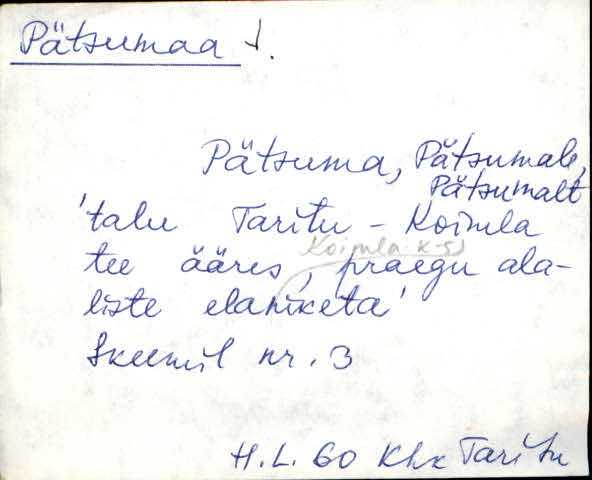 Pätsumaa t.
Pätsuma, Pätsumale,
Pätsumalt
'talu Taritu - Koimla
Koimla k-s
tee ääres, praegu ala-
liste elaniketa'
Skeemil nr. 3
H.L. 60 Khk Taritu